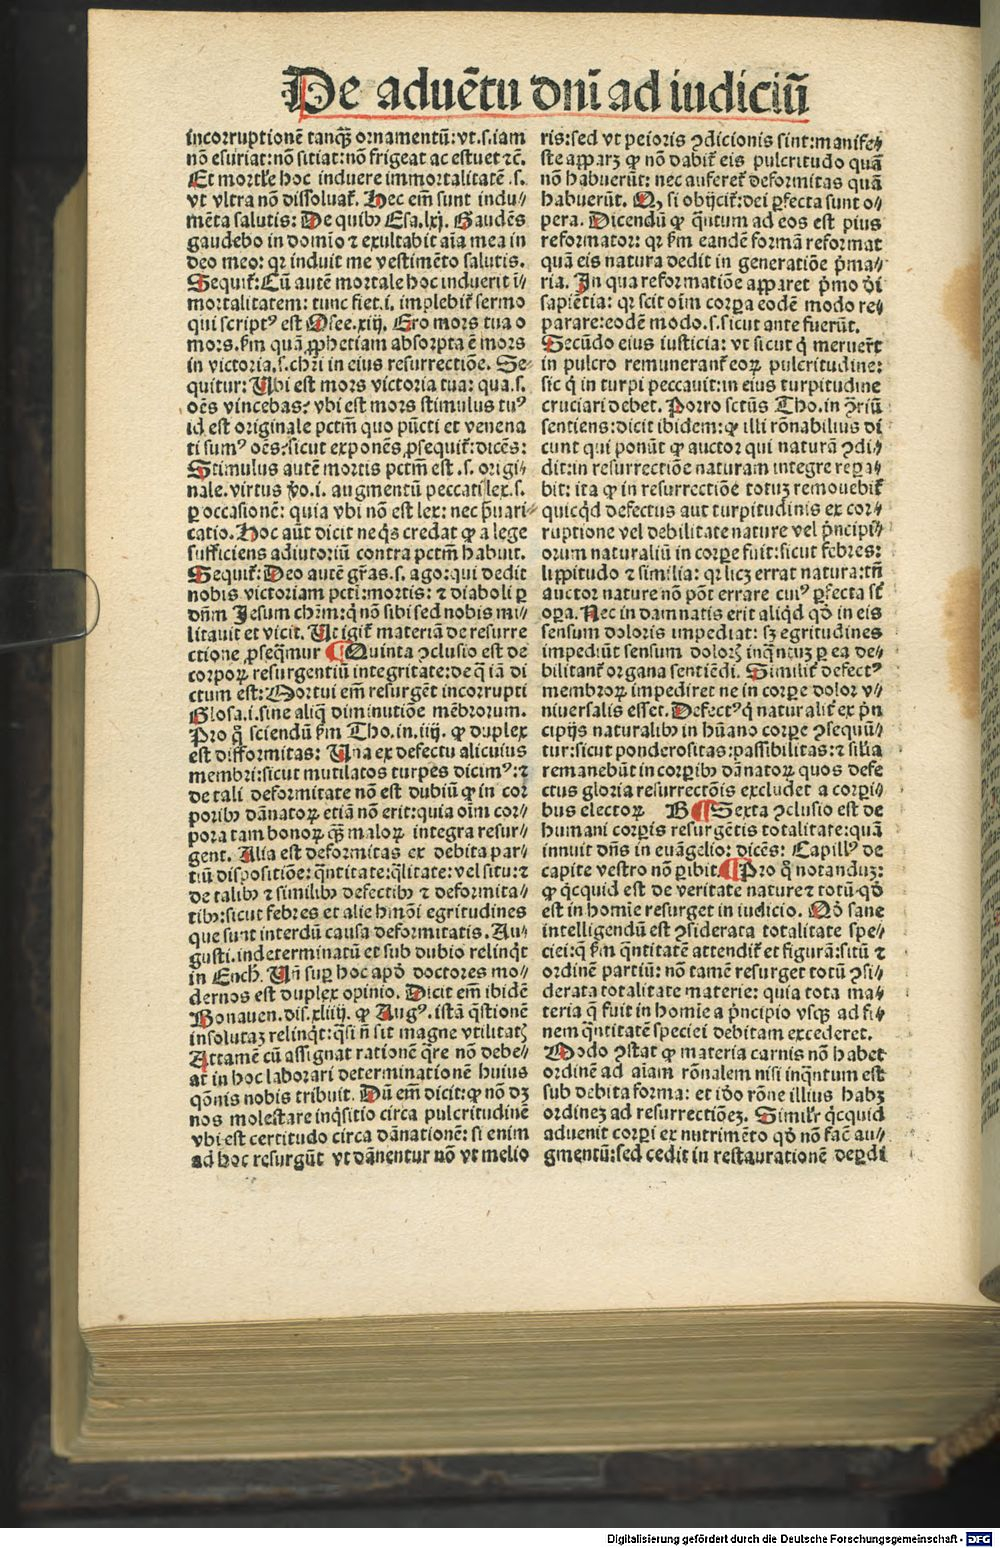 De aduētu dnī ad iudiciū
incorruptionē tanq̄ꝫ ornamentū: vt.s.iam
nō esuriat: nō sitiat: nō frigeat ac estuet ⁊c̄.
Et mortłe hoc induere immortalitatē .s.
vt vltra nō dissoluat̄. Hec em̄ sunt indu⸗
mēta salutis: De quibꝰ Esa.lxj. Gaudēs
gaudebo in domīo ⁊ exultabit aīa mea in
deo meo: qꝛ induit me vestimēto salutis.
Sequit̄: Cū autē mortale hoc induerit ī⸗
mortalitatem: tunc fiet.i. implebit̄ sermo
qui scriptꝰ est Osee.xiij. Ero mors tua o
mors. ẜm quā ꝓphetiam absorpta ē mors
in victoria.s. chr̄i in eius resurrectiōe. Se⸗
quitur: Ubi est mors victoria tua: qua.s.
oēs vincebas: vbi est mors stimulus tuꝰ
id est originale pctm̄ quo pūcti et venena
ti sumꝰ oēs: sicut exponēs ꝓsequit̄: dicēs:
Stimulus autē mortis pctm̄ est .s. origi⸗
nale. virtus ꝟo.i. augmentū peccati lex.s.
ꝑ occasionē: quia vbi nō est lex: nec p̄uari⸗
catio. Hoc aūt dicit neq̄s credat ꝙ a lege
sufficiens adiutoriū contra pctm̄ habuit.
Sequit̄: Deo autē gr̄as.s. ago: qui dedit
nobis victoriam pcti: mortis: ⁊ diaboli ꝑ
dn̄m Jesum chr̄m: q̄ nō sibi sed nobis mi⸗
litauit et vicit. Ut igit̄ materiā de resurre
ctione ꝓseq̄mur ¶ Quinta ꝯclusio est de
corpoꝝ resurgentiū integritate: de q̄ iā di
ctum est: Mortui em̄ resurgēt incorrupti
Glosa.i. sine aliq̄ diminutiōe mēbrorum.
Pro q̄ sciendū ẜm Tho.in.iiij. ꝙ duplex
est difformitas: Una ex defectu alicuius
membri: sicut mutilatos turpes dicimꝰ: ⁊
de tali deformitate nō est dubiū ꝙ in cor
poribꝰ dānatoꝝ etiā nō erit: quia oīm cor⸗
pora tam bonoꝝ q̄ꝫ maloꝝ integra resur⸗
gent. Alia est deformitas ex debita par⸗
tiū dispositiōe: q̄ntitate: q̄litate: vel situ: ⁊
de talibꝰ ⁊ similibꝰ defectibꝰ ⁊ deformita⸗
tibꝰ: sicut febres et alie hmōi egritudines
que sunt interdū causa deformitatis. Au⸗
gusti. indeterminatū et sub dubio relinq̄t
in Ench. Un̄ suꝑ hoc apd̄ doctores mo⸗
dernos est duplex opinio. Dicit em̄ ibidē
Bonauen.dis.xliiij. ꝙ Augꝰ. istā q̄stionē
insolutaꝫ relinq̄t: q̄si n̄ sit magne vtilitatꝭ
Attamē cū assignat rationē q̄re nō debe⸗
at in hoc laborari determinationē huius
q̄ōnis nobis tribuit. Dū em̄ dicit: ꝙ nō dꝫ
nos molestare inq̄sitio circa pulcritudinē
vbi est certitudo circa dānationē: si enim
ad hoc resurgūt vt dānentur nō vt melio
ris: sed vt peioris ꝯdicionis sint: manife⸗
ste apparꝫ ꝙ nō dabit̄ eis pulcritudo quā
nō habuerūt: nec auferet̄ deformitas quā
habuerūt. Qꝫ si obijcit̄: dei ꝑfecta sunt o⸗
pera. Dicendū ꝙ q̄ntum ad eos est pius
reformator: qꝛ ẜm eandē formā reformat
quā eis natura dedit in generatiōe p̄ma⸗
ria. In qua reformatiōe apparet p̄mo d̄i
sapiētia: qꝛ scit oīm corꝑa eodē modo re⸗
parare: eodē modo.s. sicut ante fuerūt.
Secūdo eius iusticia: vt sicut q̄ meruer̄t
in pulcro remunerant̄ eoꝝ pulcritudine:
sic q̄ in turpi peccauit: in eius turpitudine
cruciari debet. Porro sctūs Tho. in ꝯriū
sentiens: dicit ibidem: ꝙ illi rōnabilius di
cunt qui ponūt ꝙ auctor qui naturā ꝯdi⸗
dit: in resurrectiōe naturam integre repa⸗
bit: ita ꝙ in resurrectiōe totuꝫ remouebit̄
quicq̄d defectus aut turpitudinis ex cor⸗
ruptione vel debilitate nature vel p̄ncipi⸗
orum naturaliū in corꝑe fuit: sicut febres:
lippitudo ⁊ similia: qꝛ licꝫ errat natura: tn̄
auctor nature nō pōt errare cuiꝰ ꝑfecta st̄
oꝑa. Nec in damnatis erit aliq̄d qd̄ in eis
sensum doloris impediat: sꝫ egritudines
impediūt sensum dolorꝭ inq̄ntuꝫ ꝑ ea de⸗
bilitant̄ organa sentiēdi. Similit̄ defectꝰ
membroꝝ impediret ne in corꝑe dolor v⸗
niuersalis esset. Defectꝰ q̄ naturalit̄ ex p̄n
cipijs naturalibꝰ in hūano corꝑe ꝯsequū⸗
tur: sicut ponderositas: passibilitas: ⁊ silīa
remanebūt in corꝑibꝰ dānatoꝝ quos defe
ctus gloria resurrectōis excludet a corꝑi⸗
bus electoꝝ B ¶ Sexta ꝯclusio est de
humani corꝑis resurgētis totalitate: quā
innuit dn̄s in euāgelio: dicēs: Capillꝰ de
capite vestro nō ꝑibit. ¶ Pro q̄ notanduꝫ:
ꝙ q̄cquid est de veritate nature ⁊ totū qd̄
est in homīe resurget in iudicio. Qd̄ sane
intelligendū est ꝯsiderata totalitate spe⸗
ciei: q̄ ẜm q̄ntitatē attendit̄ et figurā: sitū ⁊
ordinē partiū: nō tamē resurget totū ꝯsi⸗
derata totalitate materie: quia tota ma⸗
teria q̄ fuit in homīe a p̄ncipio vsqꝫ ad fi⸗
nem q̄ntitatē speciei debitam excederet.
Modo ꝯstat ꝙ materia carnis nō habet
ordinē ad aīam rōnalem nisi inq̄ntum est
sub debita forma: et idō rōne illius habꝫ
ordineꝫ ad resurrectiōeꝫ. Similr̄ q̄cquid
aduenit corꝑi ex nutrimēto qd̄ nō fac̄ au⸗
gmentū: sed cedit in restaurationē deꝑdi
Digitalisierung gefördert durch die Deutsche Forschungsgemeinschaft - DFG